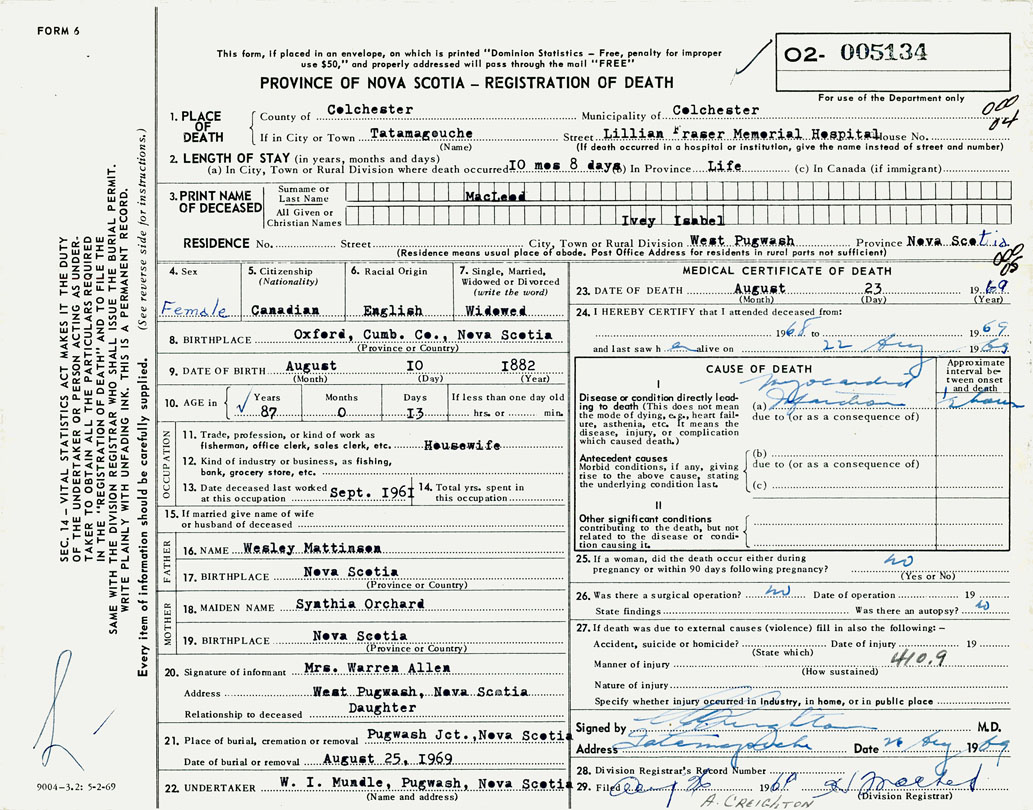 FORM 6
This form, if placed in an envelope, on which is printed "Dominion Statistics – Free, penalty for improper
use $50," and properly addressed will pass through the mail "FREE"
PROVINCE OF NOVA SCOTIA – REGISTRATION OF DEATH
O2- 005134
For use of the Department only
000
04
1. PLACE OF DEATH
County of Colchester Municipality of Colchester
If in City or Town Tatamagouche Street Lillian Fraser Memorial Hospital House No.
(Name) (If death occurred in a hospital or institution, give the name instead of street and number)
2. LENGTH OF STAY (in years, months and days)
(a) In City, Town or Rural Division where death occurred IO mos 8 days (b) In Province Life (c) In Canada (if immigrant)
3. PRINT NAME OF DECEASED
Surname or Last Name MacLeod
All Given or Christian Names Ivey Isabel
RESIDENCE No. Street City, Town or Rural Division West Pugwash Province Nova Scotia
(Residence means usual place of abode. Post Office Address for residents in rural parts not sufficient)
4. Sex
Female
5. Citizenship
(Nationality)
Canadian
6. Racial Origin
English
7. Single, Married,
Widowed or Divorced
(write the word)
Widowed
8. BIRTHPLACE Oxford, Cumb. Co., Nova Scotia
(Province or Country)
9. DATE OF BIRTH August IO I882
(Month) (Day) (Year)
10. AGE in Years Months Days If less than one day old
87 0 I3 hrs. or min.
OCCUPATION
11. Trade, profession, or kind of work as
fisherman, office clerk, sales clerk, etc. Housewife
12. Kind of industry or business, as fishing,
bank, grocery store, etc.
13. Date deceased last worked
at this occupation Sept. I96I
14. Total yrs. spent in
this occupation
15. If married give name of wife
or husband of deceased
FATHER
16. NAME Wesley Mattinson
17. BIRTHPLACE Nova Scotia
(Province or Country)
MOTHER
18. MAIDEN NAME Synthia Orchard
19. BIRTHPLACE Nova Scotia
(Province or Country)
20. Signature of informant Mrs. Warren Allen
Address West Pugwash, Nova Scotia
Relationship to deceased Daughter
21. Place of burial, cremation or removal Pugwash Jct., Nova Scotia
Date of burial or removal August 25, I969
22. UNDERTAKER W. I. Mundle, Pugwash, Nova Scotia
(Name and address)
MEDICAL CERTIFICATE OF DEATH
23. DATE OF DEATH August 23 1969
(Month) (Day) (Year)
24. I HEREBY CERTIFY that I attended deceased from:
1968 to 1969
and last saw h er alive on 22 Aug 1969
CAUSE OF DEATH
Approximate
interval be-
tween onset
and death
I
Disease or condition directly lead-
ing to death (This does not mean
the mode of dying, e.g., heart fail-
ure, asthenia, etc. It means the
disease, injury, or complication
which caused death.)
(a) Myocardial
Infarction
due to (or as a consequence of)
Antecedent causes
Morbid conditions, if any, giving
rise to the above cause, stating
the underlying condition last.
(b)
due to (or as a consequence of)
(c)
II
Other significant conditions
contributing to the death, but not
related to the disease or condi-
tion causing it.
25. If a woman, did the death occur either during
pregnancy or within 90 days following pregnancy? no
(Yes or No)
26. Was there a surgical operation? no Date of operation 19
State findings Was there an autopsy? no
27. If death was due to external causes (violence) fill in also the following: –
Accident, suicide or homicide? Date of injury 19
(State which)
Manner of injury 410.9
(How sustained)
Nature of injury
Specify whether injury occurred in industry, in home, or in public place
Signed by Creighton M.D.
Address Tatamagouche Date 26 Aug 1969
28. Division Registrar's Record Number
29. Filed Aug 26 1969
(Division Registrar)
A. CREIGHTON
SEC. 14 – VITAL STATISTICS ACT MAKES IT THE DUTY
OF THE UNDERTAKER OR PERSON ACTING AS UNDER-
TAKER TO OBTAIN ALL THE PARTICULARS REQUIRED
IN THE "REGISTRATION OF DEATH" AND TO FILE THE
SAME WITH THE DIVISION REGISTRAR WHO SHALL ISSUE THE BURIAL PERMIT.
WRITE PLAINLY WITH UNFADING INK. THIS IS A PERMANENT RECORD.
Every item of information should be carefully supplied. (See reverse side for instructions.)
9004–3.2: 5-2-69